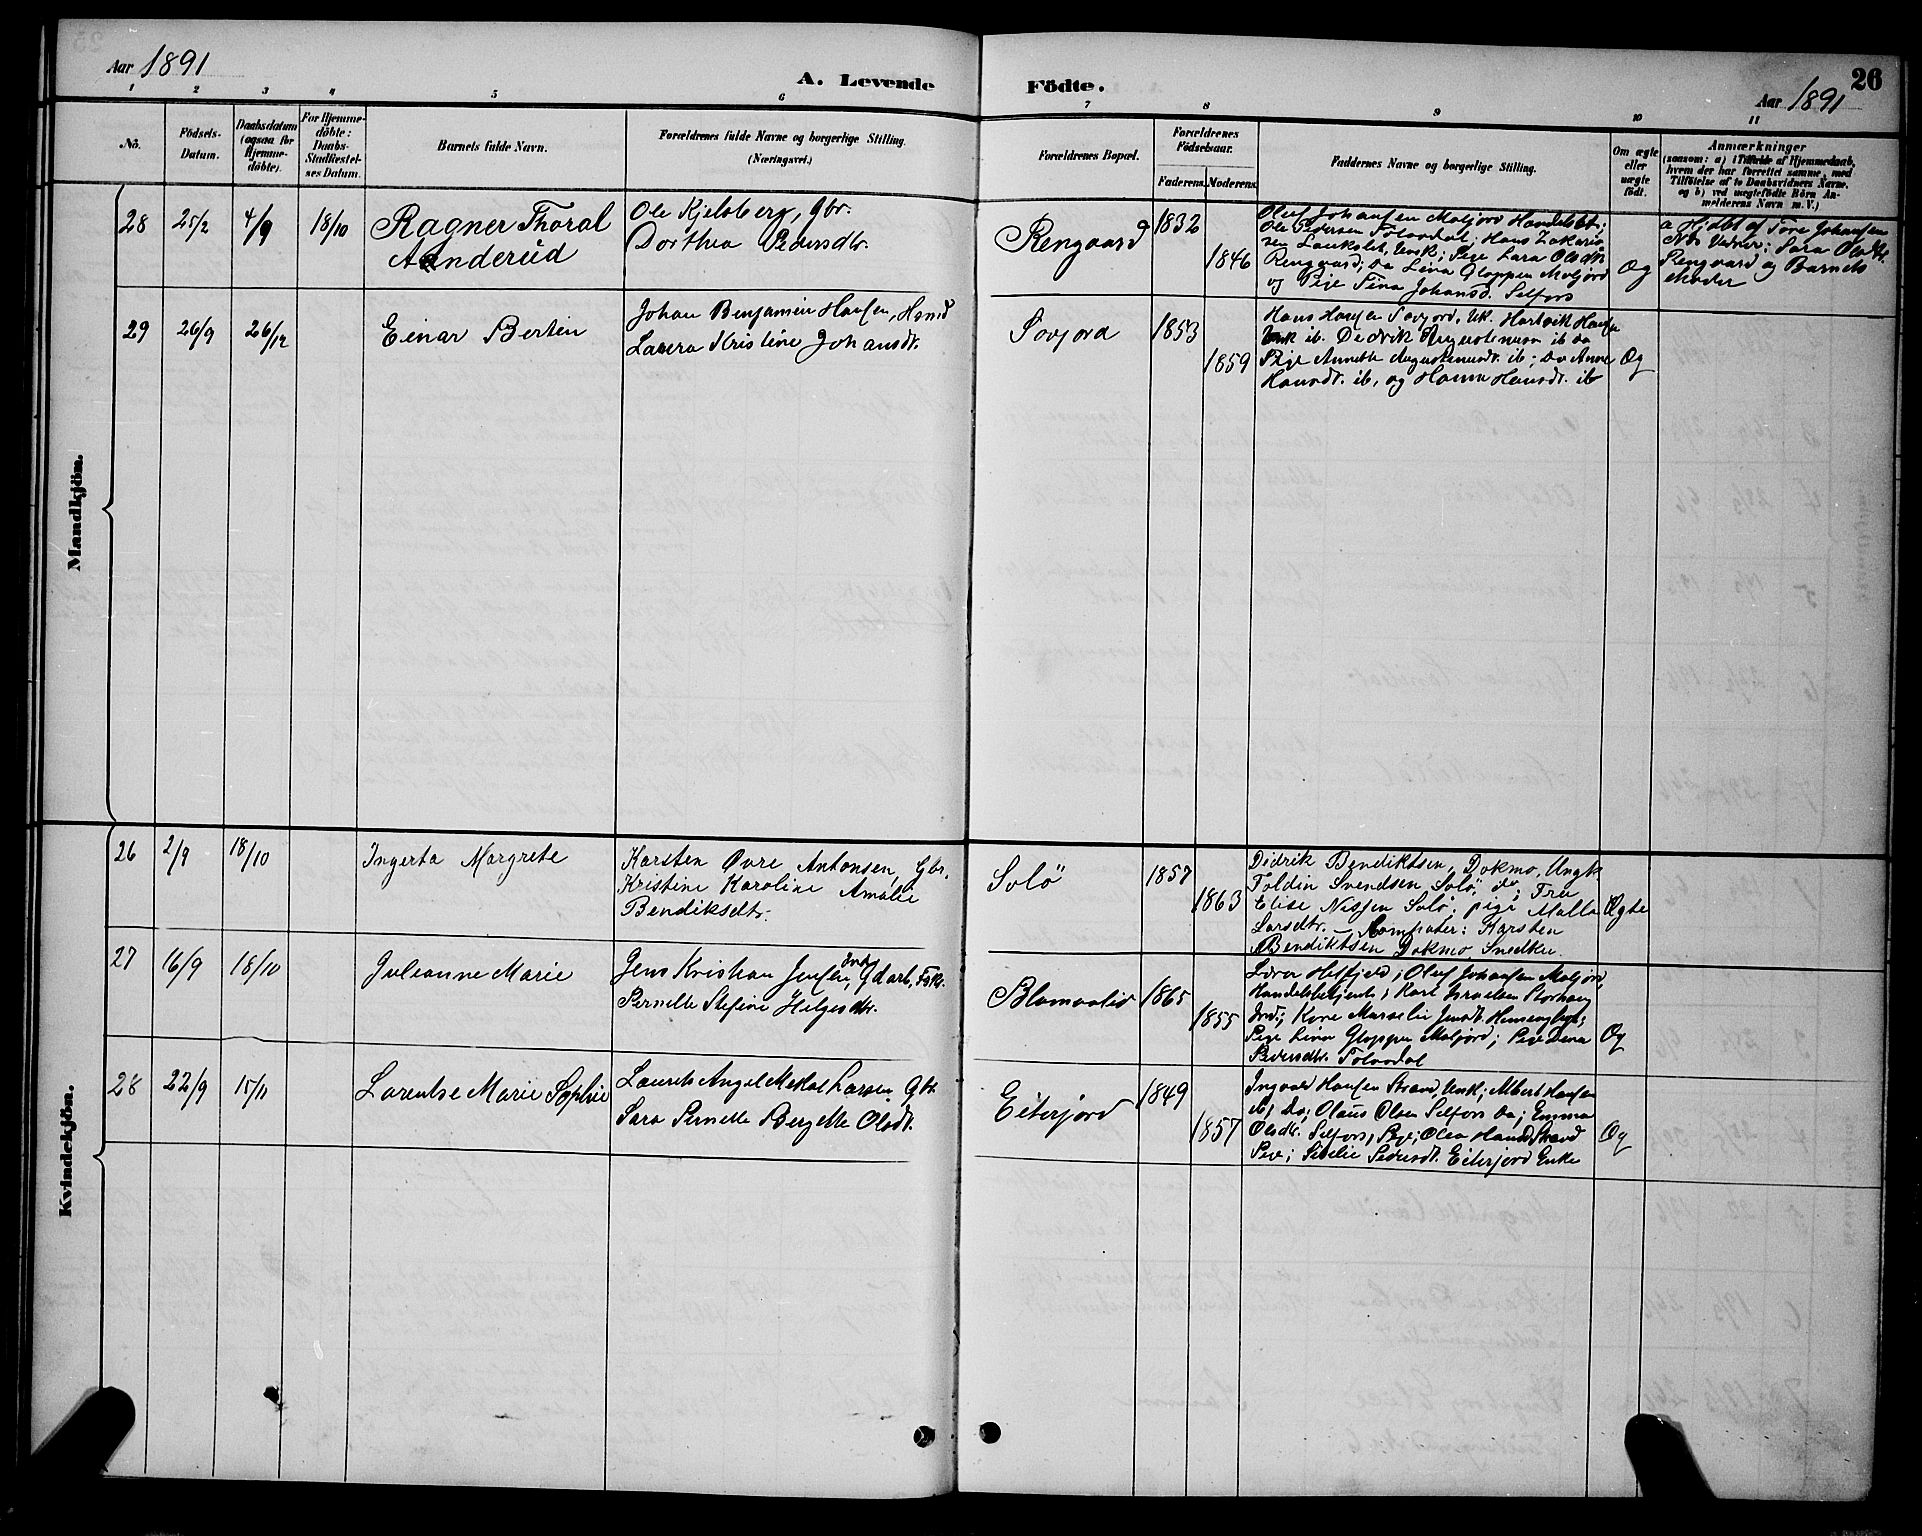 Aar 1891
A. Levende Födte.
26
Aar 1891
1 2 3 4 5 6 7 8 9 10 11
No.
Födsels-
Datum.
Daabsdatum
(ogsaa for
Hjemme-
döbte).
For Hjemme-
döbte:
Daabs-
Stadfæstel-
ses Datum.
Barnets fulde Navn.
Forældrenes fulde Navne og borgerlige Stilling.
(Næringsvei.)
Forældrenes Bopæl.
Forældrenes
Födselsaar.
Faderens. Moderens.
Faddernes Navne og borgerlige Stilling.
Om ægte
eller
uægte
födt.
Anmærkninger
(saasom: a) i Tilfælde af Hjemmedaab,
hvem der har forrettet samme, med
Tilföielse af to Daabsvidners Navne.
og b) ved uægtefödte Börn An-
melderens Navn m. V.)
Mandkjön.
28 25/2 4/9 18/10
Ragner Thoral
Aanderud
Ole Kjelsberg, Gbr.
Dorthea Pedersdtr.
Rengaard
1832
1846
Oluf Johansen Moljord Handelsbt.;
Ole Pedersen Tolaadal; Hans Zakaria
sen Laukslet, Unk; Pige Sara Olsdtr
Rengaard; Do Lina Gloppen Moljord
og Pige Fina Johansd. Selfors
Æg
a Hjdbt af Tore Johansen
Vidner: Sara Olsdtr.
Rengaard og Barnets
Moder
29 26/9 26/12
Einar Bertin
Johan Benjamin Hansen, Hsmd
Laura Kristine Johansdtr.
Tovjord
1853
1859
Hans Hansen Tovjord, Uk. Hartvik Hansen
Unk ib. Dedrik Augustenusn ib Do
Pige Annette Augustenusdt. ib; Do Anne
Hansdt. ib, og Hanna Hansdt. ib
Æg
Kvindekjön.
26 2/9 18/10
Ingerta Margrete
Karsten Øvre Antonsen, Gbr.
Kristine Karoline Amalie
Bendiksdtr.
Solö
1857
1863
Didrik Bendiktsen, Dokmo, Ungk
Toldin Svendsen Solö, do, Fru
Elise Nissen Solö, pige Malla
Larsdtr. — Compater: Karsten
Bendiktsen Dokmo Snedker.
Ægte
27 16/9 18/10
Julianne Marie
Jens Kristian Jensen, Ind, Gdarb, Fsk.
Pernelle Stefine Helgesdtr.
Blomaalid
1865
1855
Lærer Hesfjeld; Oluf Johansen Moljord,
Handelsbetjent; Karl Israelsen Storhaug
Ind.; Kone Marselie Jensdt.
Pige Lina Gloppen Moljord; Pige Dena
Pedersdtr. Tolaadal
Æg
28 22/9 15/11
Larentse Marie Sophie
Laurits Angel Mekal Larsen, Gbr
Sara Pernelle Bergitte Olsdt.
Eiterjord
1849
1857
Ingvald Hansen Strand, Unk; Albert Hansen
ib, Do; Olaus Olsen Selfors Do; Emma
Olsdtr. Selfors, Pige; Olea Hansd Strand
Pige; Sesilie Pedersdt. Eiterjord Enke
Æg